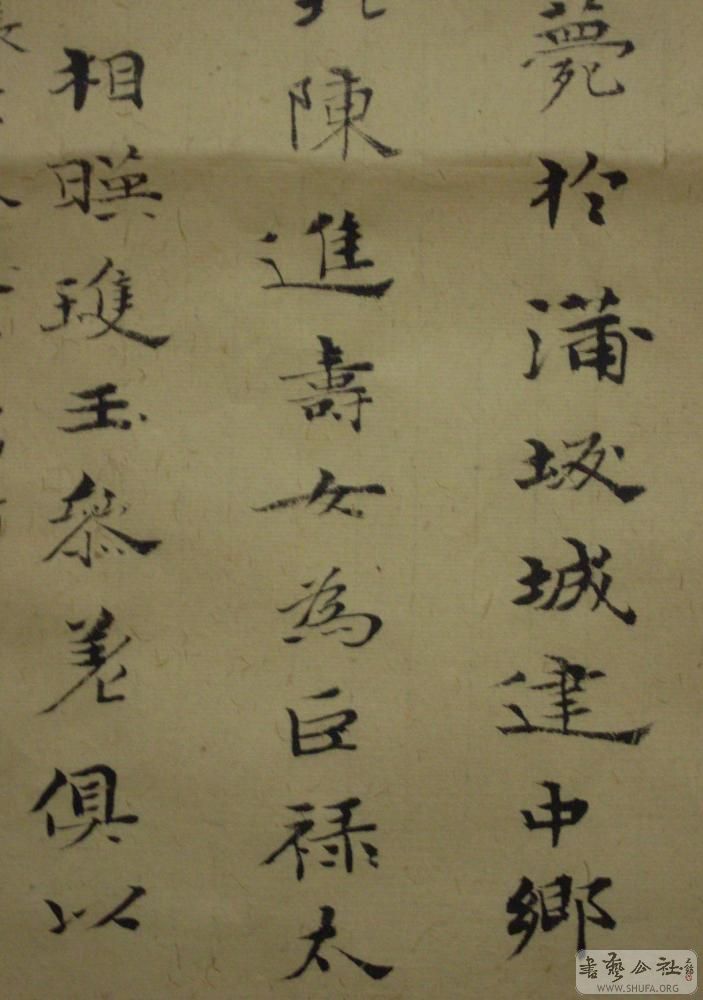 薨於蒲坂城建中鄉
陳進壽女為巨祿太
相暎瓊玉叅差俱以
書藝公社
WWW.SHUFA.ORG